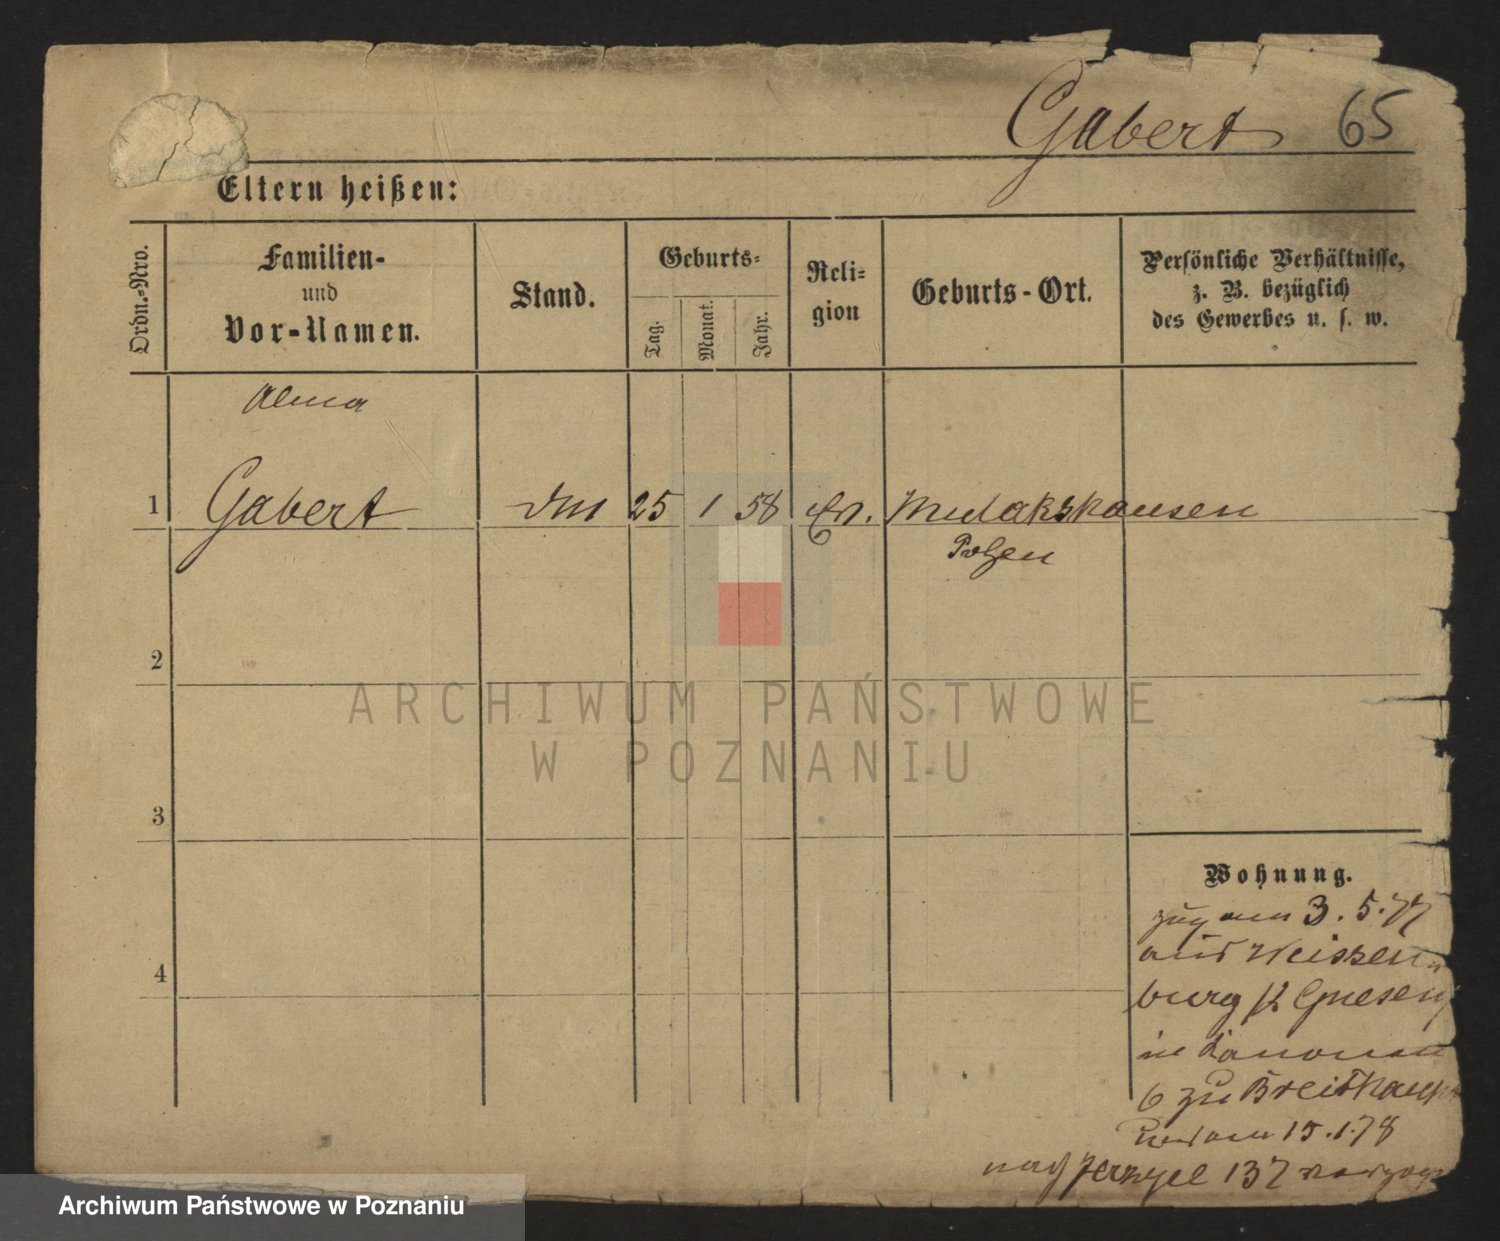 Gabert 65
Eltern heißen:
Ordn.-Nro.
Familien-
und
Vor-Namen.
Stand.
Geburts-
Tag.
Monat.
Jahr.
Reli-
gion
Geburts-Ort.
Persönliche Verhältnisse,
z. B. bezüglich
des Gewerbes u. s. w.
Alma
1 Gabert 25 1 58 Ev.
2
ARCHIWUM PAŃSTWOWE
W POZNANIU
3
Wohnung.
zug am 3.5.77
aus Weissen-
4
burg Gnesen
in
6 zu Breithaupt
15.1.78
nach 137
Archiwum Państwowe w Poznaniu